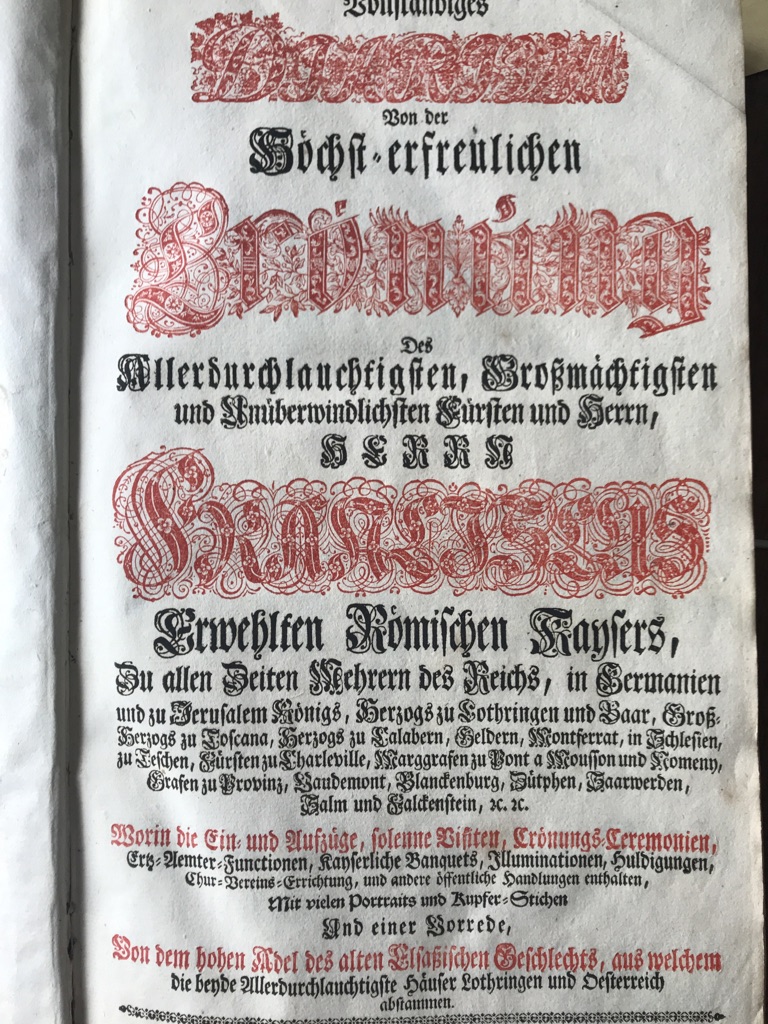 Vollständiges
DIARIUM
Von der
Höchst-erfreulichen
Crönung
Des
Allerdurchlauchtigsten, Großmächtigsten
und Unüberwindlichsten Fürsten und Herrn,
HERRN
FRANCISCUS
Erwehlten Römischen Kaysers,
Zu allen Zeiten Mehrern des Reichs, in Germanien
und zu Jerusalem Königs, Herzogs zu Lothringen und Baar, Groß-
Herzogs zu Toscana, Herzogs zu Calabern, Geldern, Montferrat, in Schlesien,
zu Teschen, Fürsten zu Charleville, Marggrafen zu Pont a Mousson und Nomeny,
Grafen zu Provinz, Vaudemont, Blanckenburg, Zütphen, Saarwerden,
Salm und Falckenstein, ꝛc. ꝛc.
Worin die Ein- und Aufzüge, solenne Visiten, Crönungs-Ceremonien,
Ertz-Aemter-Functionen, Kayserliche Banquets, Illuminationen, Huldigungen,
Chur-Vereins-Errichtung, und andere öffentliche Handlungen enthalten,
Mit vielen Portraits und Kupfer-Stichen
Und einer Vorrede,
Von dem hohen Adel des alten Elsaßischen Geschlechts, aus welchem
die beyde Allerdurchlauchtigste Häuser Lothringen und Oesterreich
abstammen.